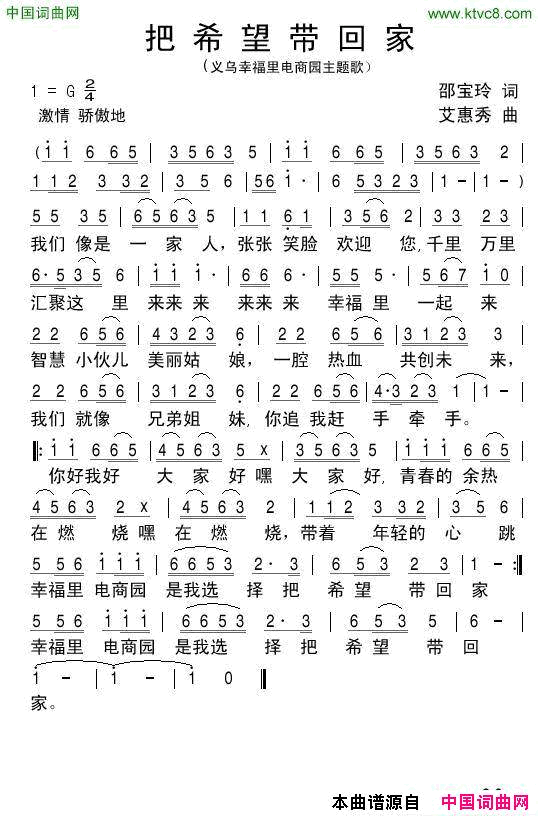 中国词曲网
www.ktvc8.com
把希望带回家
(义乌幸福里电商园主题歌)
1 = G 2/4
邵宝玲 词
激情 骄傲地
艾惠秀 曲
( i i 6 65 | 3 5 6 3 5 | i i 6 65 | 3 5 6 3 2 |
1 1 2 3 32 | 3 5 2 3 | 5 6 i · 6 | 6 5 3 2 3 | 1 - | 1 - )
5 5 3 5 | 6 5 6 3 5 | 1 1 6 1 | 3 5 6 2 | 2 2 2 3 |
我们 像是 一 家 人, 张张 笑脸 欢迎 您, 千里 万里
6 · 5 3 5 6 | i i i · | 6 6 6 · | 3 5 3 5 · | 5 6 7 i 0 |
汇聚这 里 来来 来 来来 来 幸福 里 一起 来
2 2 6 5 6 | 4 3 2 3 6 | 1 · 2 6 6 | 3 1 2 3 3 |
智慧 小伙儿 美丽姑 娘, 一腔 热血 共创未 来,
2 2 6 5 6 | 3 5 6 3 2 | 2 2 6 5 6 | 4 · 3 2 3 1 | 1 - |
我们 就像 兄弟姐 妹, 你追 我赶 手 牵 手。
‖: i i 6 6 5 | 4 5 6 3 5 x | 4 5 6 3 5 | i i 6 6 5 |
你好我好 大 家 好嘿大 家 好, 青春的 余热
4 5 6 3 2 x | 4 5 6 3 2 | 1 1 2 3 3 2 | 3 5 6 |
在 燃 烧嘿 在 燃 烧, 带着 年轻的 心 跳
5 5 6 i i i | 6 6 5 3 2 · 3 | 6 5 3 2 · 3 | 1 - :‖
幸福里 电商园 是我选 择把 希 望 带 回 家
5 5 6 i i i | 6 6 5 3 2 · 3 | 6 5 3 5 6 | 2 - |
幸福里 电商园 是我选 择把 希 望 带 回
i - | i - | i 0 ‖
家。
本曲谱源自 中国词曲网